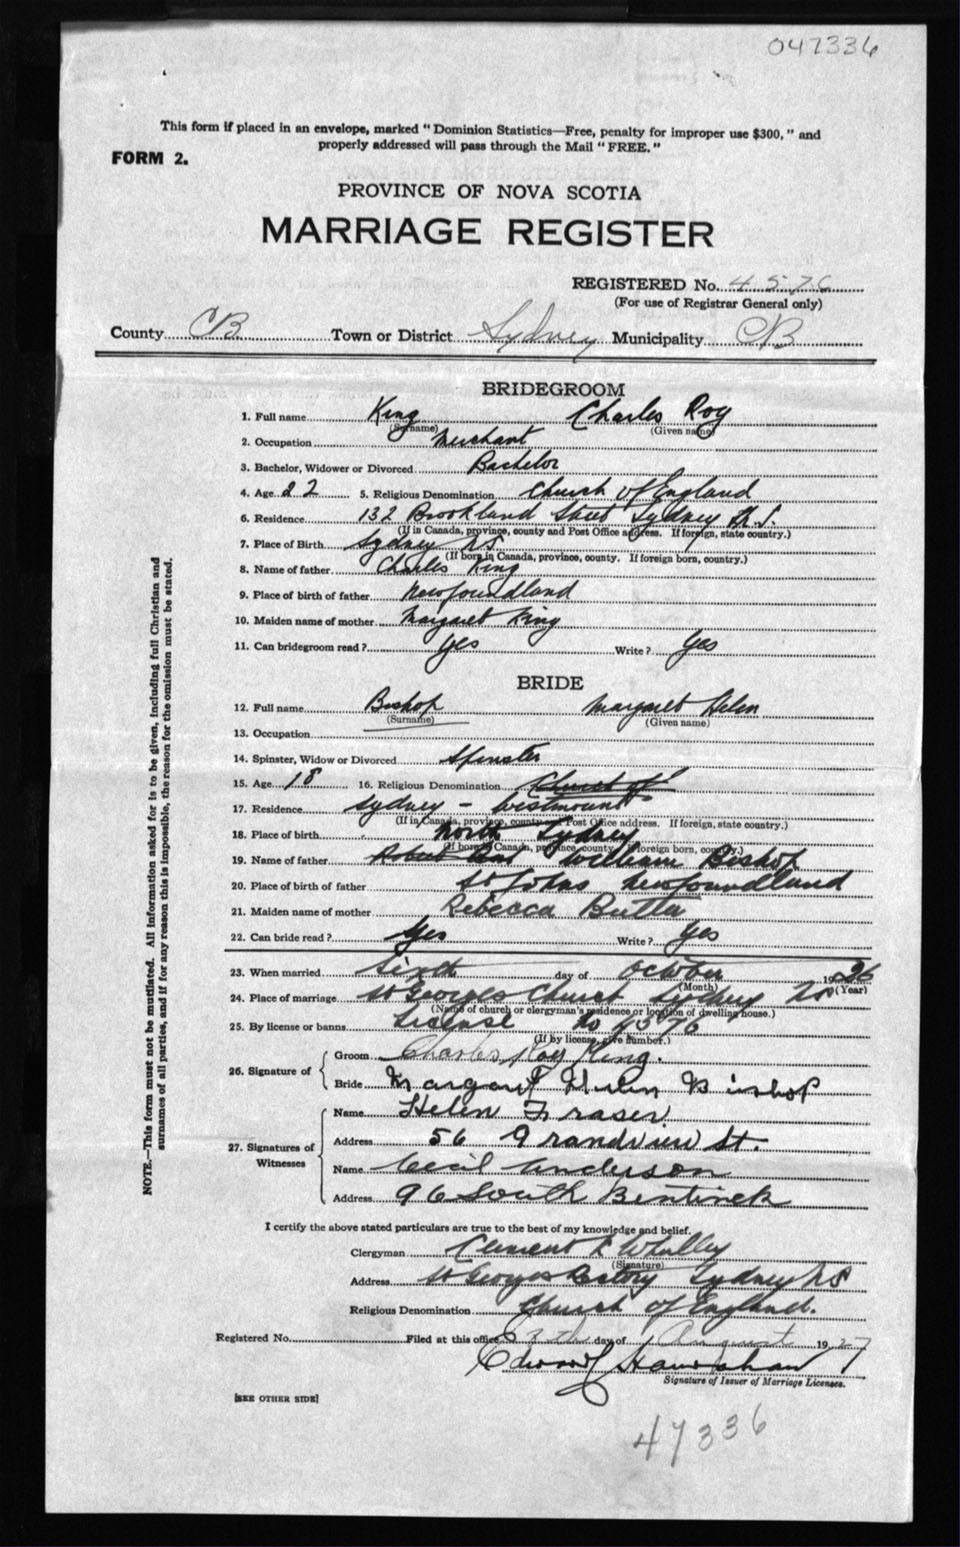 047336
This form if placed in an envelope, marked "Dominion Statistics—Free, penalty for improper use $300," and
properly addressed will pass through the Mail "FREE."
FORM 2.
PROVINCE OF NOVA SCOTIA
MARRIAGE REGISTER
REGISTERED No. 4576
(For use of Registrar General only)
County CB Town or District Sydney Municipality CB
BRIDEGROOM
1. Full name King Charles Roy
(Surname) (Given name)
2. Occupation Merchant
3. Bachelor, Widower or Divorced Bachelor
4. Age 22 5. Religious Denomination Church of England
6. Residence 132 Brookland Street Sydney N.S.
(If in Canada, province, county and Post Office address. If foreign, state country.)
7. Place of Birth Sydney NS
(If born in Canada, province, county. If foreign born, country.)
8. Name of father Charles King
9. Place of birth of father Newfoundland
10. Maiden name of mother Margaret King
11. Can bridegroom read? Yes Write? Yes
BRIDE
12. Full name Bishop Margaret Helen
(Surname) (Given name)
13. Occupation
14. Spinster, Widow or Divorced Spinster
15. Age 18 16. Religious Denomination Church of
17. Residence Sydney - Westmount
(If in Canada, province, county and Post Office address. If foreign, state country.)
18. Place of birth North Sydney
(If born in Canada, province, county. If foreign born, country.)
19. Name of father Robert William Bishop
20. Place of birth of father St Johns Newfoundland
21. Maiden name of mother Rebecca Butta
22. Can bride read? Yes Write? Yes
23. When married Sixth day of October 1926
(Month) (Year)
24. Place of marriage St Georges Church Sydney
(Name of church or clergyman's residence or location of dwelling house.)
25. By license or banns License No 4576
(If by license, give number.)
26. Signature of
Groom Charles Roy King.
Bride Margaret Helen Bishop
27. Signatures of Witnesses
Name Helen Fraser
Address 56 Grandview St.
Name Cecil Anderson
Address 96 South Bentinck
I certify the above stated particulars are true to the best of my knowledge and belief.
Clergyman Clement Whalley
(Signature)
Address St Georges Rectory Sydney NS
Religious Denomination Church of England.
Registered No. Filed at this office day of August 1927
Edward Hanrahan
Signature of Issuer of Marriage Licenses.
[SEE OTHER SIDE]
47336
NOTE.—This form must not be mutilated. All information asked for is to be given, including full Christian and
surnames of all parties, and if for any reason this is impossible, the reason for the omission must be stated.